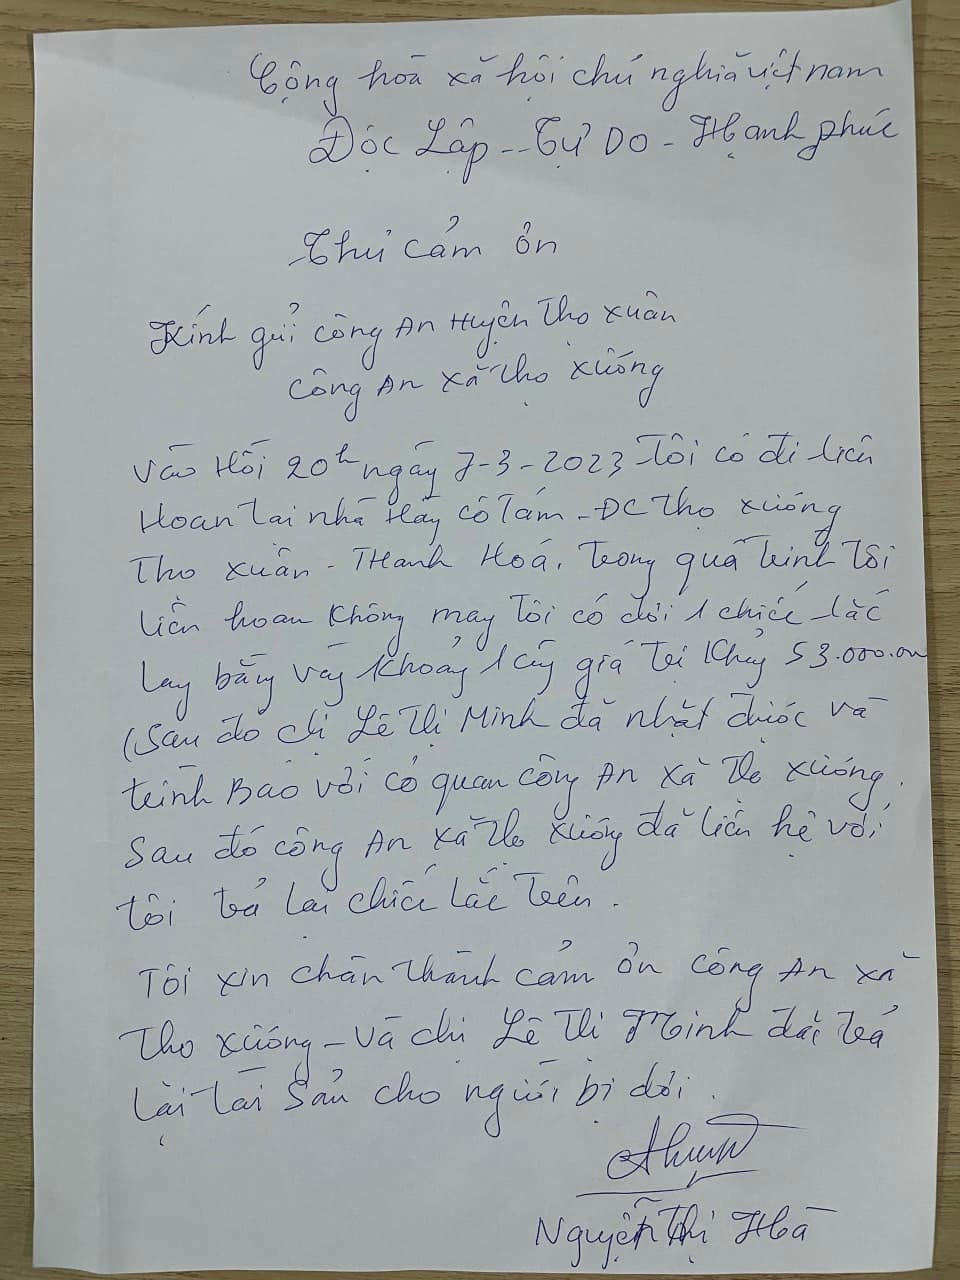 Cộng hoà xã hội chủ nghĩa việt nam
Độc Lập -- Tự Do - Hạnh phúc
Thư cảm ơn
Kính gửi công An Huyện Thọ xuân
công An xã thọ xương
Vào Hồi 20h ngày 7-3-2023 Tôi có đi liên
Hoan tại nhà Hày cô Tám - ĐC Thọ xương
Thọ xuân - THanh Hoá. Trong quá trình Tôi
liên hoan không may Tôi có dơi 1 chiếc lắc
tay bằng vàng khoảng 1 cây giá trị khoảng 53.000.000
(Sau đó chị Lê Thị Minh đã nhặt được và
trình Báo với cơ quan công An xã Thọ xương.
Sau đó công An xã Thọ xương đã liên hệ với
tôi trả lại chiếc lắc trên.
Tôi xin chân thành cảm ơn công An xã
Thọ xương - và chị Lê Thị Minh đã trả
lại tài sản cho người bị dơi.
Nguyễn Thị Hoà